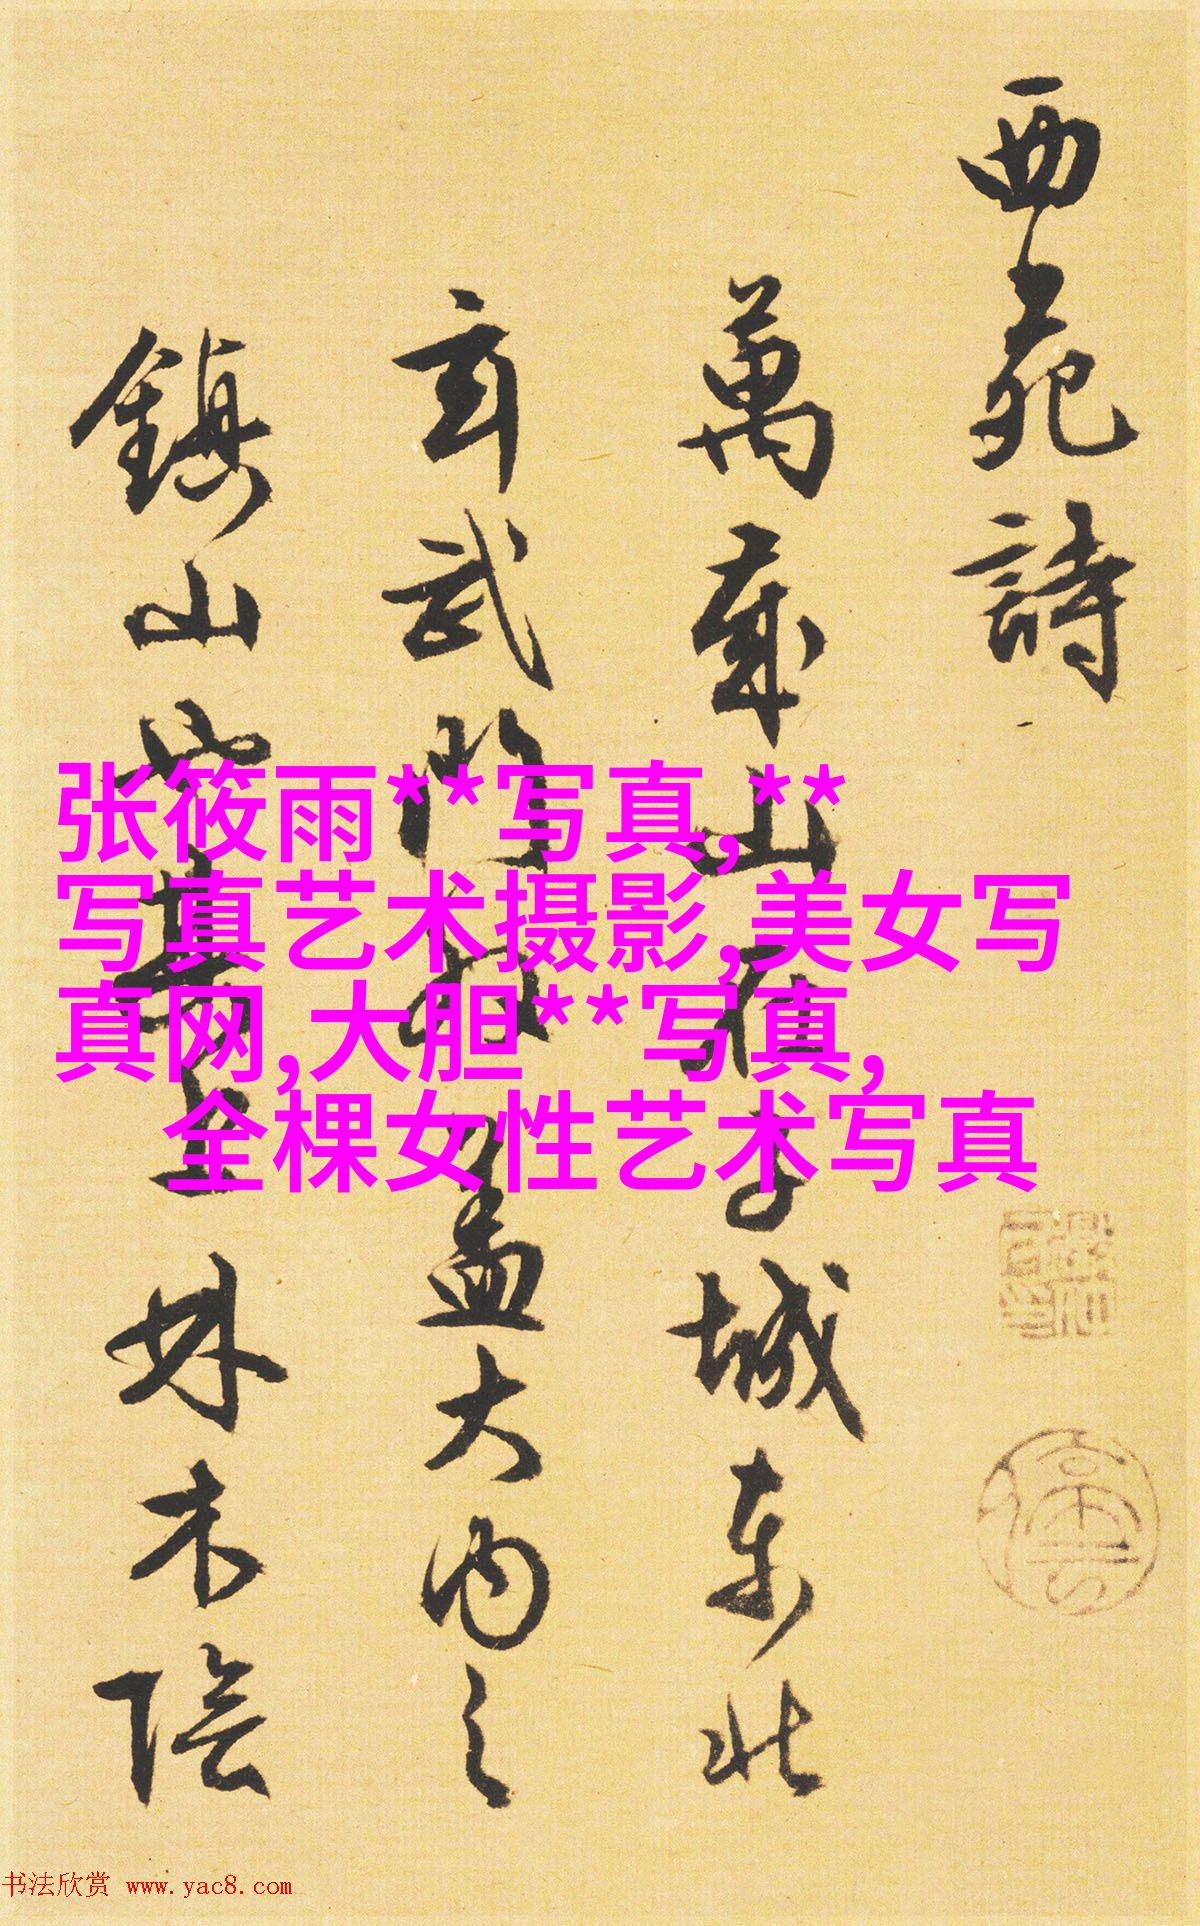 西苑詩
萬歲山在子城東北
玄武門外為大內之
鎮山其上林木陰
张筱雨**写真,**
写真艺术摄影,美女写
真网,大胆**写真,
全棵女性艺术写真
书法欣赏 www.yac8.com